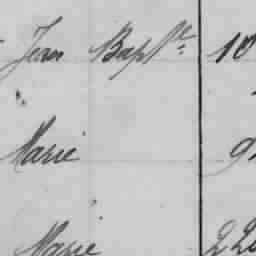 Jean Bapte 10
Marie 9
Marie 22